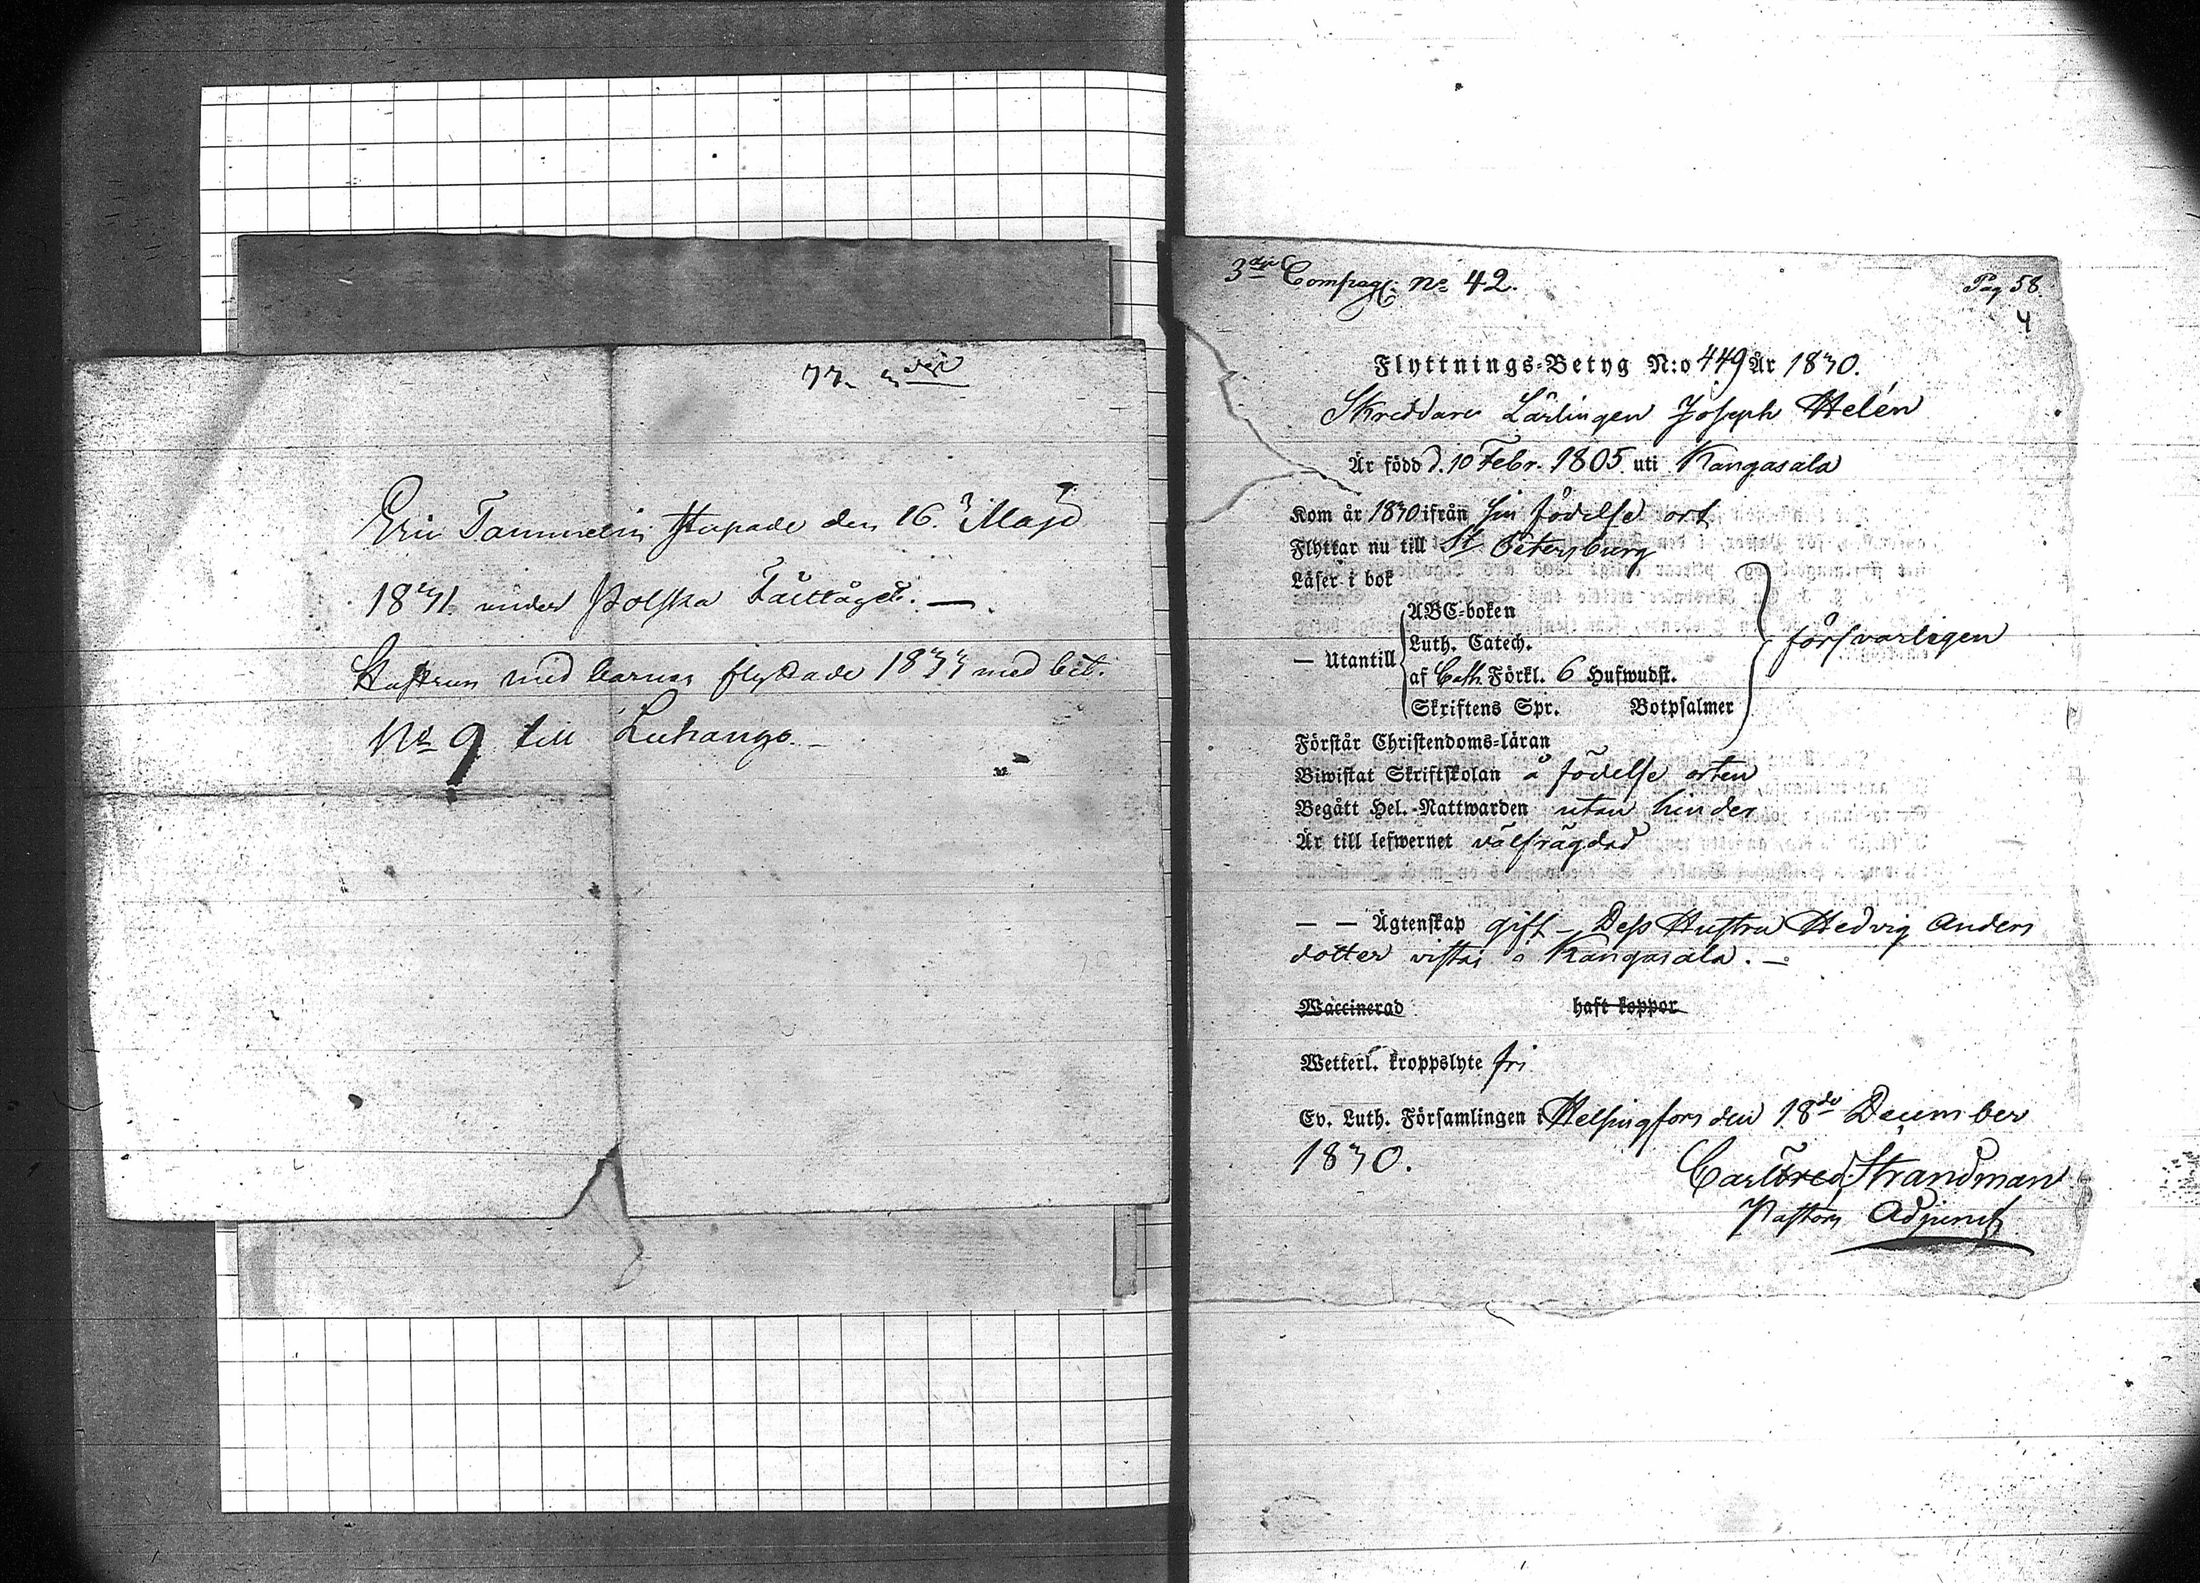 77.
Eric Tammelin stupade den 16. Maji
1831. under Polska Fälttåget. —
Hustrun med barnen flyttade 1833 med bet.
No 9 till Luhango. —
3dje Compag: No 42.
Pag 58.
4
Flyttnings-Betyg N:o 449 År 1830.
Skreddare Lärlingen Joseph Helén
Är född d. 10 Febr. 1805 uti Kangasala
Kom år 1830 ifrån sin födelse ort
Flyttar nu till St Petersburg
Läser i bok
ABC-boken
Luth. Catech.
— Utantill
af Cath. Förkl. 6 Hufwudst.
Skriftens Spr. Botpsalmer
försvarligen
Förstår Christendoms-läran
Biwistat Skriftskolan å födelse orten
Begått Hel. Nattwarden utan hinder
Är till lefwernet välfrägdad
— — Ägtenskap gift — Dess Hustru Hedvig Anders
dotter vistas i Kangasala. —
Waccinerad haft koppor
Wetterl. kroppslyte fri
Ev. Luth. Församlingen i Helsingfors den 18de December
1830.
Carl Fred. Strandman
Pastors Adjunct